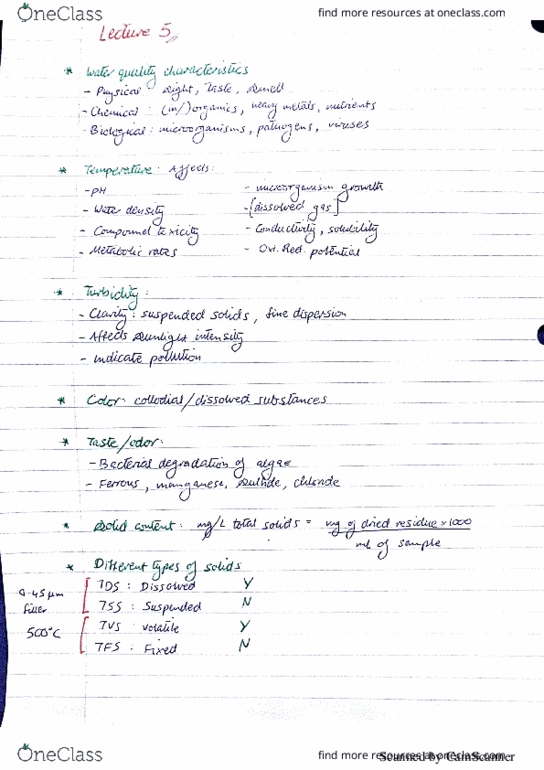 OneClass
find more resources at oneclass.com
Lecture 5
* Water quality characteristics
- Physical sight, taste, smell
- Chemical : (in/)organics, heavy metals, nutrients
- Biological : microorganisms, pathogens, viruses
* Temperature : Affects :
- pH - microorganism growth
- Water density - [dissolved gas]
- Compound toxicity - Conductivity, solubility
- Metabolic rates - Oxi. Red. potential
* Turbidity :
- Clarity : suspended solids, fine dispersion
- Affects sunlight intensity
- indicate pollution
* Color : collodial/dissolved substances
* Taste/odor :
- Bacterial degradation of algae
- Ferrous, manganese, sulfide, chloride
* Solid content : mg/L total solids = mg of dried residue × 1000
ml of sample
* Different types of solids
0.45 μm TDS : Dissolved Y
filter TSS : Suspended N
500°C TVS : Volatile Y
TFS : Fixed N
OneClass
find more resources at oneclass.com
Scanned by CamScanner